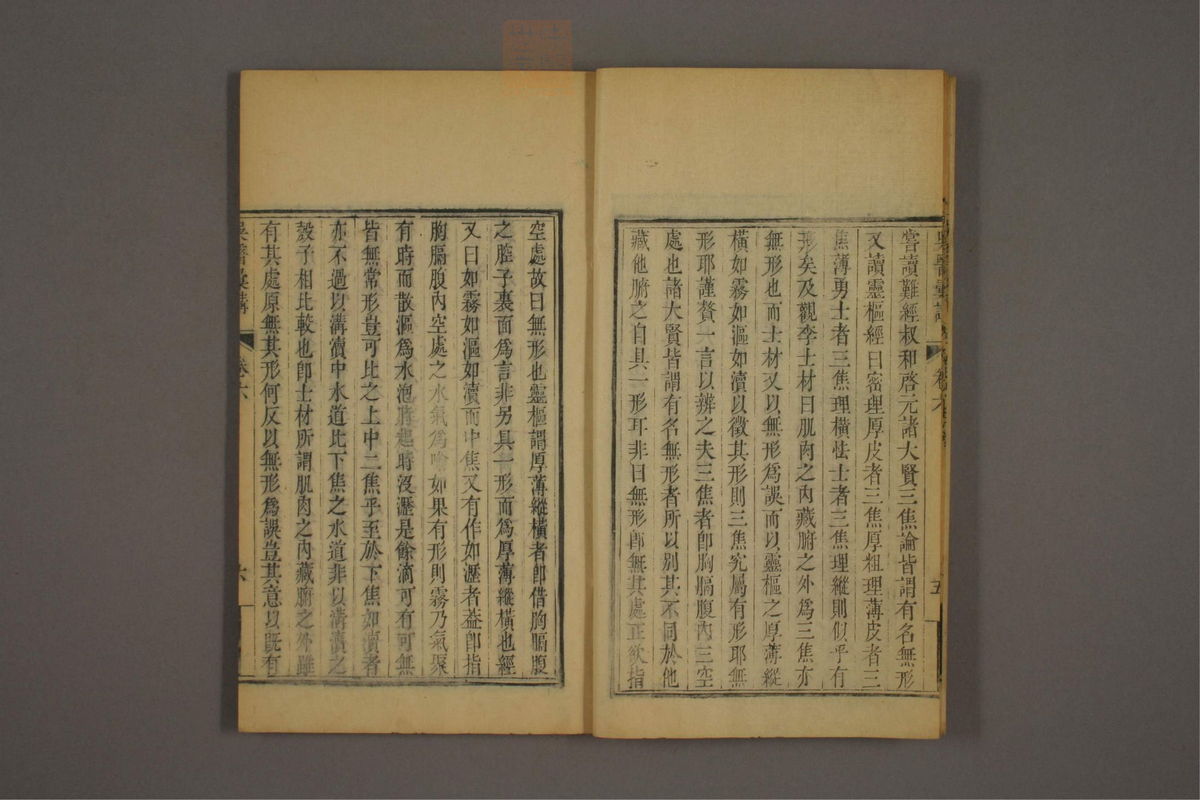 嘗讀難經叔和啓元諸大賢三焦論皆謂有名無形
又讀靈樞經曰密理厚皮者三焦厚粗理薄皮者三
焦薄勇士者三焦理橫怯士者三焦理縱則似乎有
形矣及觀李士材曰肌肉之內藏腑之外爲三焦亦
無形也而士材又以無形爲誤而以靈樞之厚薄縱
橫如霧如漚如瀆以徵其形則三焦究屬有形耶無
形耶謹贅一言以辨之夫三焦者卽胸膈腹內三空
處也諸大賢皆謂有名無形者所以別其不同於他
藏他腑之自具一形耳非曰無形卽無其處正欲指
空處故曰無形也靈樞謂厚薄縱橫者卽借胸膈腹
之腔子裏面爲言非另具一形而爲厚薄縱橫也經
又曰如霧如漚如瀆而中焦又有作如瀝者葢卽指
胸膈腹內空處之水氣爲喻如果有形則霧乃氣聚
有時而散漚爲水泡時起時沒瀝是餘滴可有可無
皆無常形豈可比之上中二焦乎至於下焦如瀆者
亦不過以溝瀆中水道比下焦之水道非以溝瀆之
殼子相比較也卽士材所謂肌肉之內藏腑之外雖
有其處原無其形何反以無形爲誤豈其意以既有
吳醫彙講
卷六
六